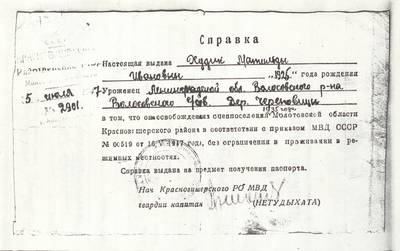 Справка
Настоящая выдана Худик Матильды
Ивановны "1926" года рождения
5 июля 7 Уроженец Ленинградской обл. Волосовского р-на
№ 2901. Волосовского Дер. Череповицы
1935 года
в том, что он освобожден спецпоселения Молотовской области
Красновишерского района в соответствии с приказом МВД СССР
№ 00519 от 16/V 1947 года, без ограничения в проживании в ре-
жимных местностях.
Справка выдана на предмет получения паспорта.
Нач Красновишерского РО МВД
гвардии капитан (НЕТУДЫХАТА)